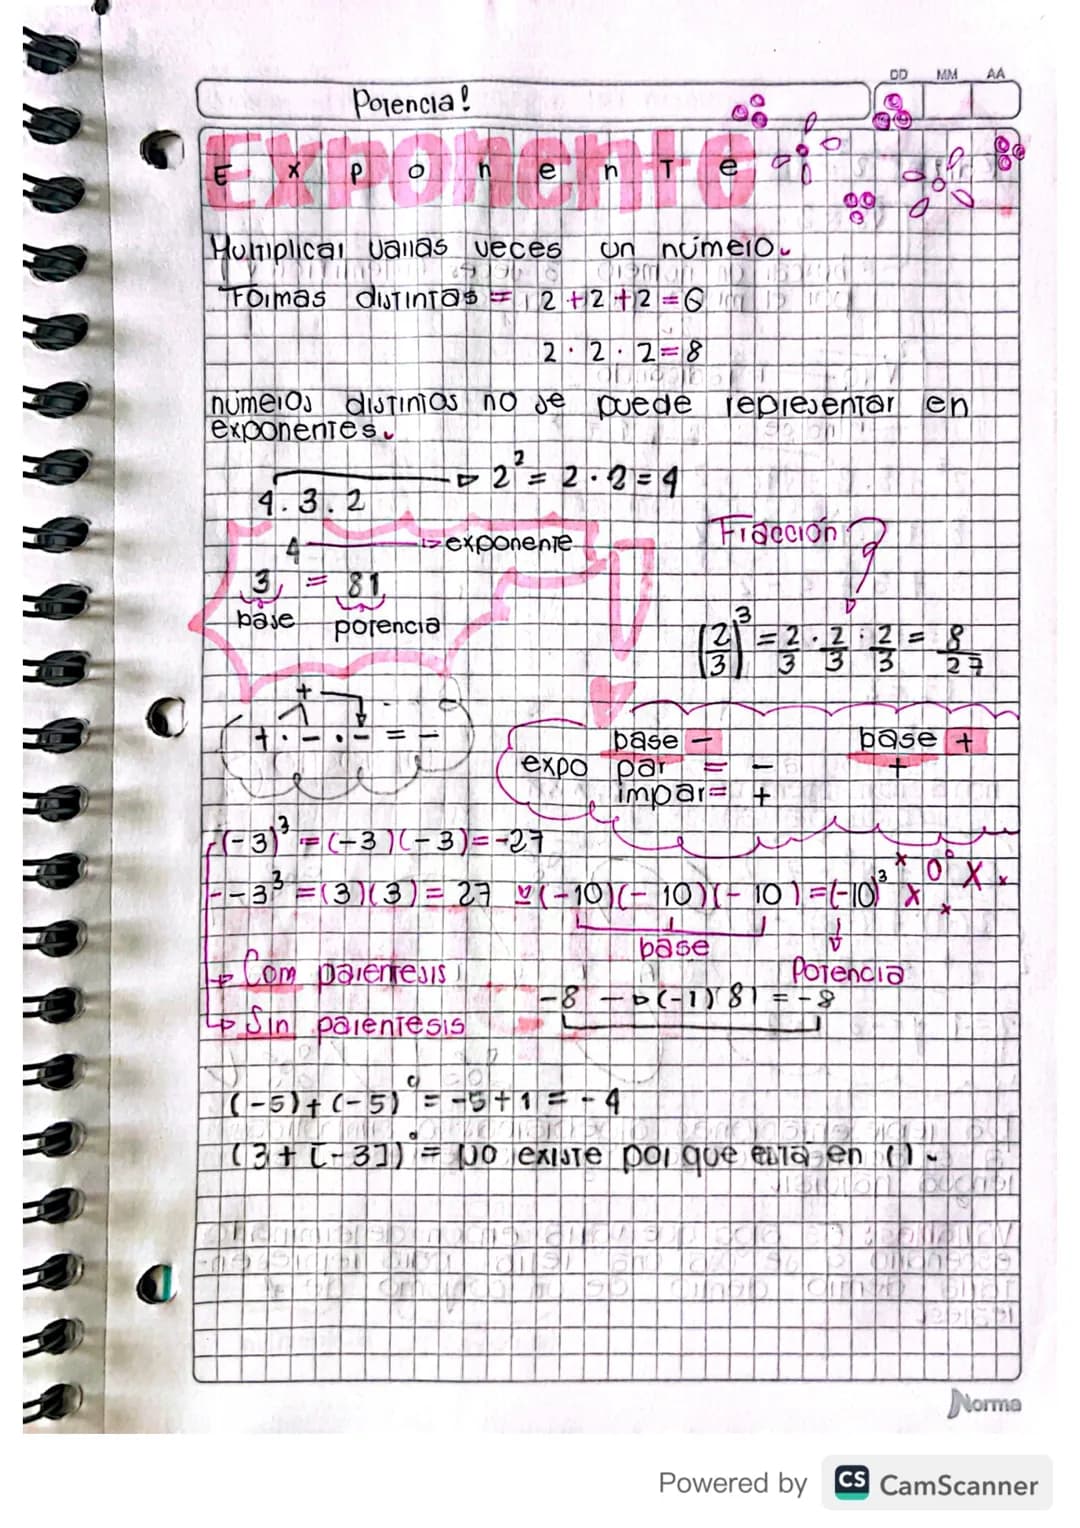 DD MM AA
Potencia!
Exponente
Multiplicar varias veces un número.
Formas distintas = 2 + 2 + 2 = 6
2 · 2 · 2 = 8
números distintos no se puede representar en
exponentes.
4 . 3 . 2 → 2² = 2 · 2 = 4
3⁴ = 81 → exponente
base potencia
Fracción?
(2/3)³ = 2/3 · 2/3 · 2/3 = 8/27
+
+ · - · - = -
base - base +
expo par = - +
impar = +
(-3)³ = (-3)(-3) = -27
- -3³ = (3)(3) = 27 (-10)(-10)(-10) = (-10)³ x 0⁰ X x
base
Potencia
Com parentesis
-8 → (-1)(8) = -8
Sin parentesis
(-5) + (-5)⁰ = -5 + 1 = -4
(3 + [-3])⁰ = No existe porque está en ( ).
Norma
Powered by CS CamScanner